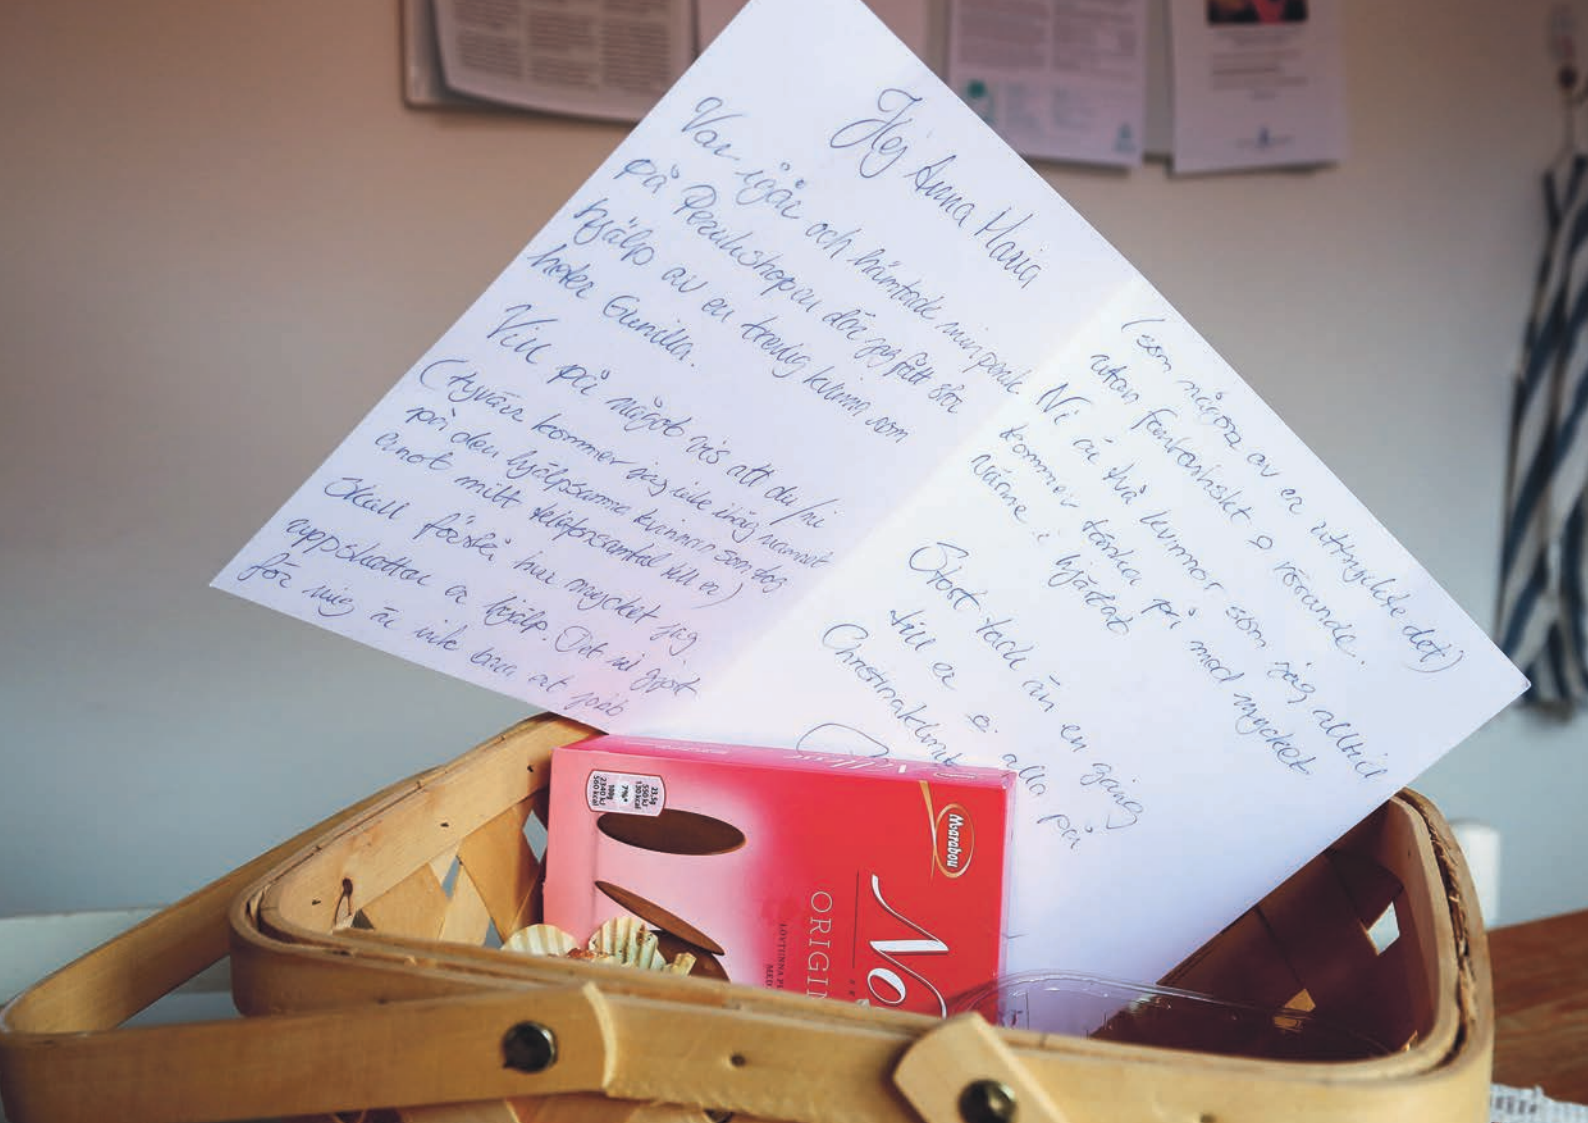 Hej Anna Maria
Var igår och hämtade min peruk
på Perukshopen där jag fått stor
hjälp av en trevlig kvinna som
heter Gunilla.
Vill på något vis att du/ni
(tyvärr kommer jag inte ihåg namnet
på den hjälpsamma kvinnan som tog
emot mitt telefonsamtal till er)
Skall förstå hur mycket jag
uppskattar er hjälp. Det ni gjort
för mig är inte bara ett jobb
(som några av er uttryckte det)
utan fantastiskt o rörande.
Ni är två kvinnor som jag alltid
kommer tänka på med mycket
värme i hjärtat
Stort tack än en gång
till er o alla på
Christinaklinik
Marabou
No
ORIGI
LÖVTUNNA
MED
23,5g
550 kJ
130 kcal
7%*
100g
2340 kJ
560 kcal